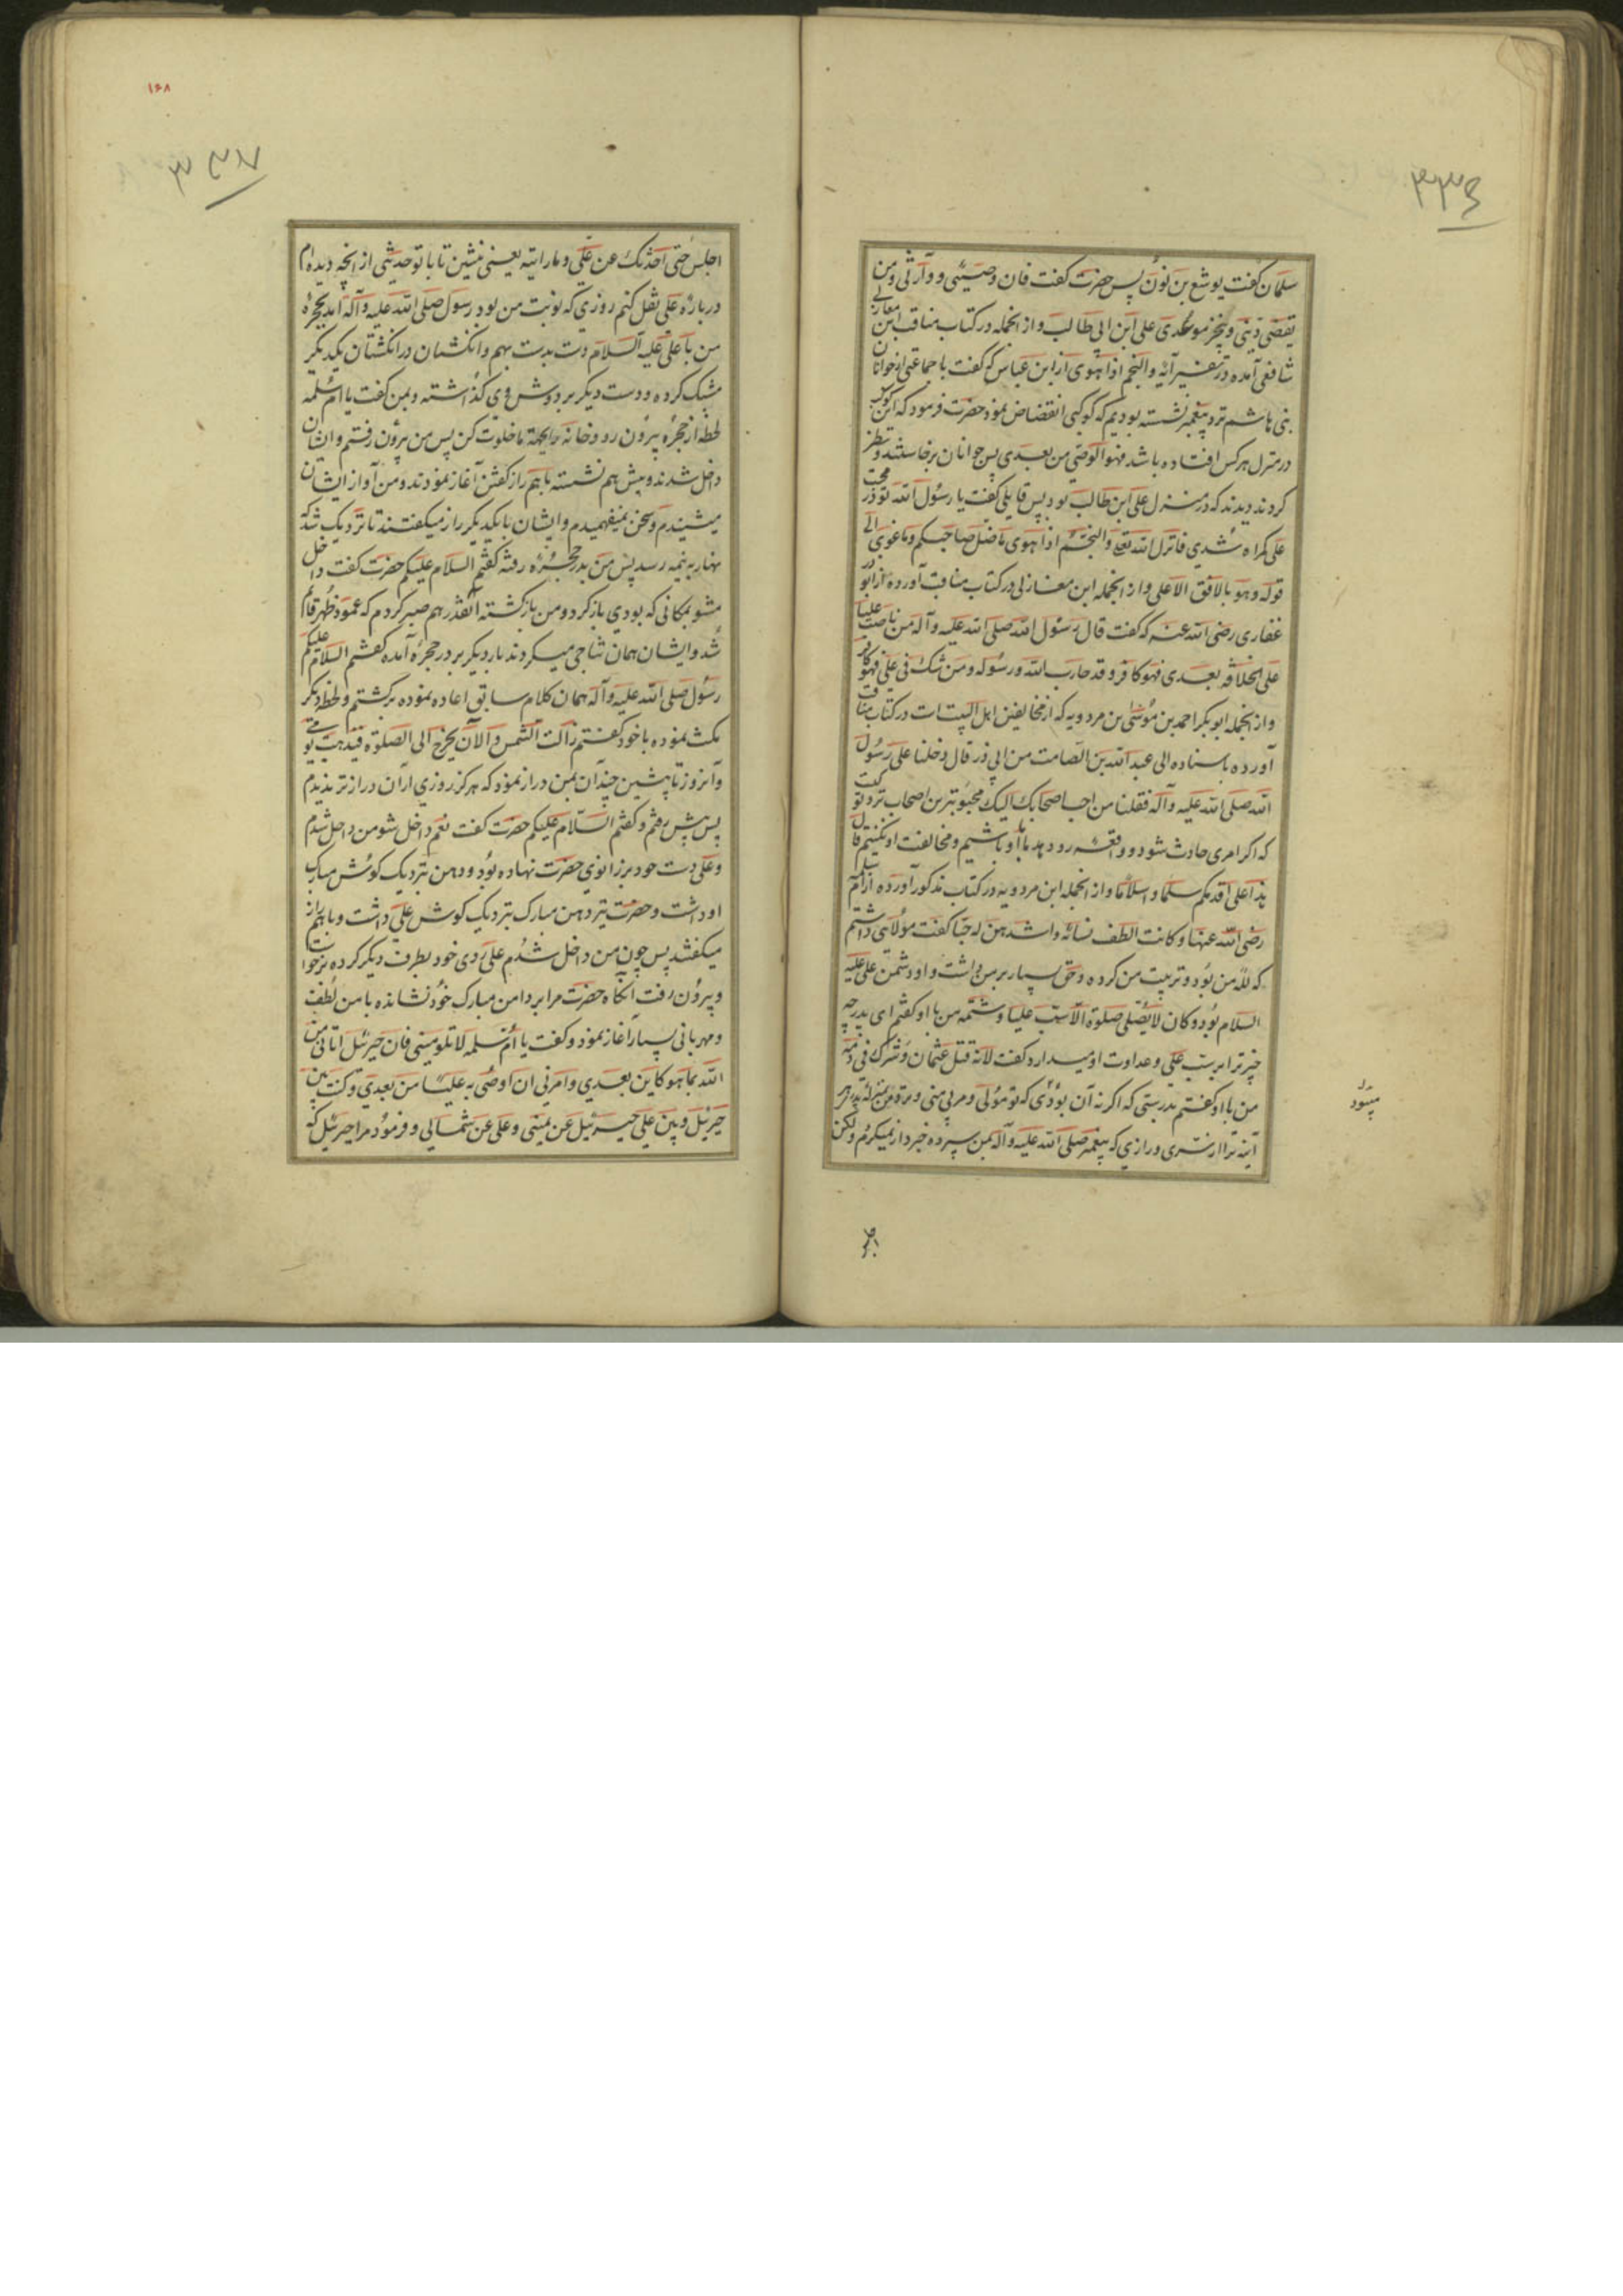 ۳۳۶
سلمان گفت یوشع بن نون پس حضرت گفت فان وصیتی و وارثی و من
یقضی دینی و ینجز موعدی علی ابن ابی طالب و از انجمله در کتاب مناقب ابن مغازلی
شافعی آمده در تفسیر آیه والنجم اذا هوی از ابن عباس که گفت با جماعتی از جوانان
بنی هاشم نزد پیغمبر نشسته بودیم که کوکبی انقضاض نمود حضرت فرمود که این کوکب
در منزل هرکس افتاده باشد فهو الوصی من بعدی پس جوانان برخاستند و نظر
کردند دیدند که در منزل علی ابن طالب بود پس قایلی گفت یا رسول الله تو در محبت
علی کمراه شدی فانزل الله تعالی والنجم اذا هوی ماضل صاحبکم و ما غوی الی
قوله و هو بالافق الاعلی و از انجمله ابن مغازلی در کتاب مناقب آورده از ابوذر
غفاری رضی الله عنه که گفت قال رسول الله صلی الله علیه وآله من ناصب علیا
علی الخلافة بعدی فهو کافر و قد حارب الله و رسوله و من شک فی علی فهو کافر
و از انجمله ابوبکر احمد بن موسی بن مردویه که از مخالفین اهل البیت است در کتاب مناقب
آورده باسناده الی عبد الله بن الصامت من ابی ذر قال دخلنا علی رسول
الله صلی الله علیه وآله فقلنا من احب اصحابک الیک محبوبترین اصحاب نزد تو کیست
که اکر امری حادث شود و واقعه رو دهد ما با او باشیم و مخالفت او نکنیم قال
هذا علی اقدمکم سلما و اسلاما و از انجمله ابن مردویه در کتاب مذکور آورده از ام سلمه
رضی الله عنها و کانت الطف نسائه و اشدهن له حبا گفت مولایی داشتم
که لله من بود و تربیت من کرده و حق بسیار بر من داشت و او دشمن علی علیه
السلام بود و کان لا یصلی صلوة الا سب علیا و شتمه من با او گفتم ای پدر چه
چیز ترا بر سب علی و عداوت او میدارد گفت لانه قتل عثمان و شرک فی دمه
من با او گفتم بدرستی که اکر نه آن بودی که تو مولی و مربی منی و نزد من بمنزله پدر هر
آینه ترا از سری و رازی که پیغمبر صلی الله علیه وآله بمن سپرده خبردار نمیکردم ولکن
اجلس
۱۶۸
۳۳۷
اجلس حتی احدثک عن علی و ما رایته یعنی بنشین تا با تو حدیثی از انچه دیده ام
درباره علی نقل کنم روزی که نوبت من بود رسول صلی الله علیه وآله آمد بحجره
من با علی علیه السلام دست بدست بهم و انکشتان در انکشتان یکدیکر
مشبک کرده و دست دیکر بر دوش وی گذاشته و بمن گفت یا ام سلمه
لحظه از حجره بیرون رو و خانه را بجهة ما خلوت کن پس من بیرون رفتم و ایشان
داخل شدند و پیش هم نشسته باهم راز گفتن آغاز نمودند و من آواز ایشان
میشنیدم و سخن نمیفهمیدم و ایشان با یکدیکر راز میکفتند تا نزدیک شد که
نهار به نیمه رسد پس من بدر حجره رفته گفتم السلام علیکم حضرت گفت داخل
مشو بمکانی که بودی باز کرد و من بازکشته آنقدر هم صبر کردم که عمود ظهر قائم
شد و ایشان همان تناجی میکردند بار دیکر بر در حجره آمده گفتم السلام علیکم
رسول صلی الله علیه وآله همان کلام سابق اعاده نموده برکشتم و لحظه دیکر
مکث نموده با خود گفتم زالت الشمس و الآن یخرج الی الصلوة فیذهب یومی
و آنروز تا پیشین چندان بمن دراز نمود که هرکز روزی از آن درازتر ندیدم
پس پیش رفتم و گفتم السلام علیکم حضرت گفت نعم داخل شو من داخل شدم
و علی دست خود بر زانوی حضرت نهاده بود و دهن نزدیک کوش مبارک
او داشت و حضرت نیز دهن مبارک نزدیک کوش علی داشت و باهم راز
میکفتند پس چون من داخل شدم علی روی خود بطرف دیکر کرده برخواست
و بیرون رفت آنکاه حضرت مرا بر دامن مبارک خود نشانده با من لطف
و مهربانی بسیار آغاز نمود و گفت یا ام سلمه لا تلومینی فان جبرئیل اتانی من
الله بما هو کاین بعدی و امرنی ان اوصی به علیا من بعدی و کنت بین
جبرئیل و بین علی جبرئیل عن یمینی و علی عن شمالی و فرمود مرا جبرئیل که